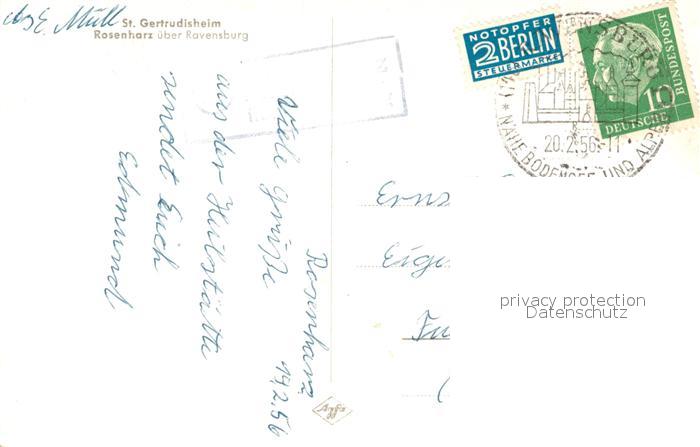 Abs. E. Müll
St. Gertrudisheim
Rosenharz über Ravensburg
Rosenharz 19.2.56
Viele Grüße
aus der Heilstätte
sendet Euch
Edmund
NOTOPFER
2 BERLIN
STEUERMARKE
10
DEUTSCHE
BUNDESPOST
20.2.56-11
NAHE BODENSEE UND ALPEN
Ernst
privacy protection
Datenschutz
Agfa